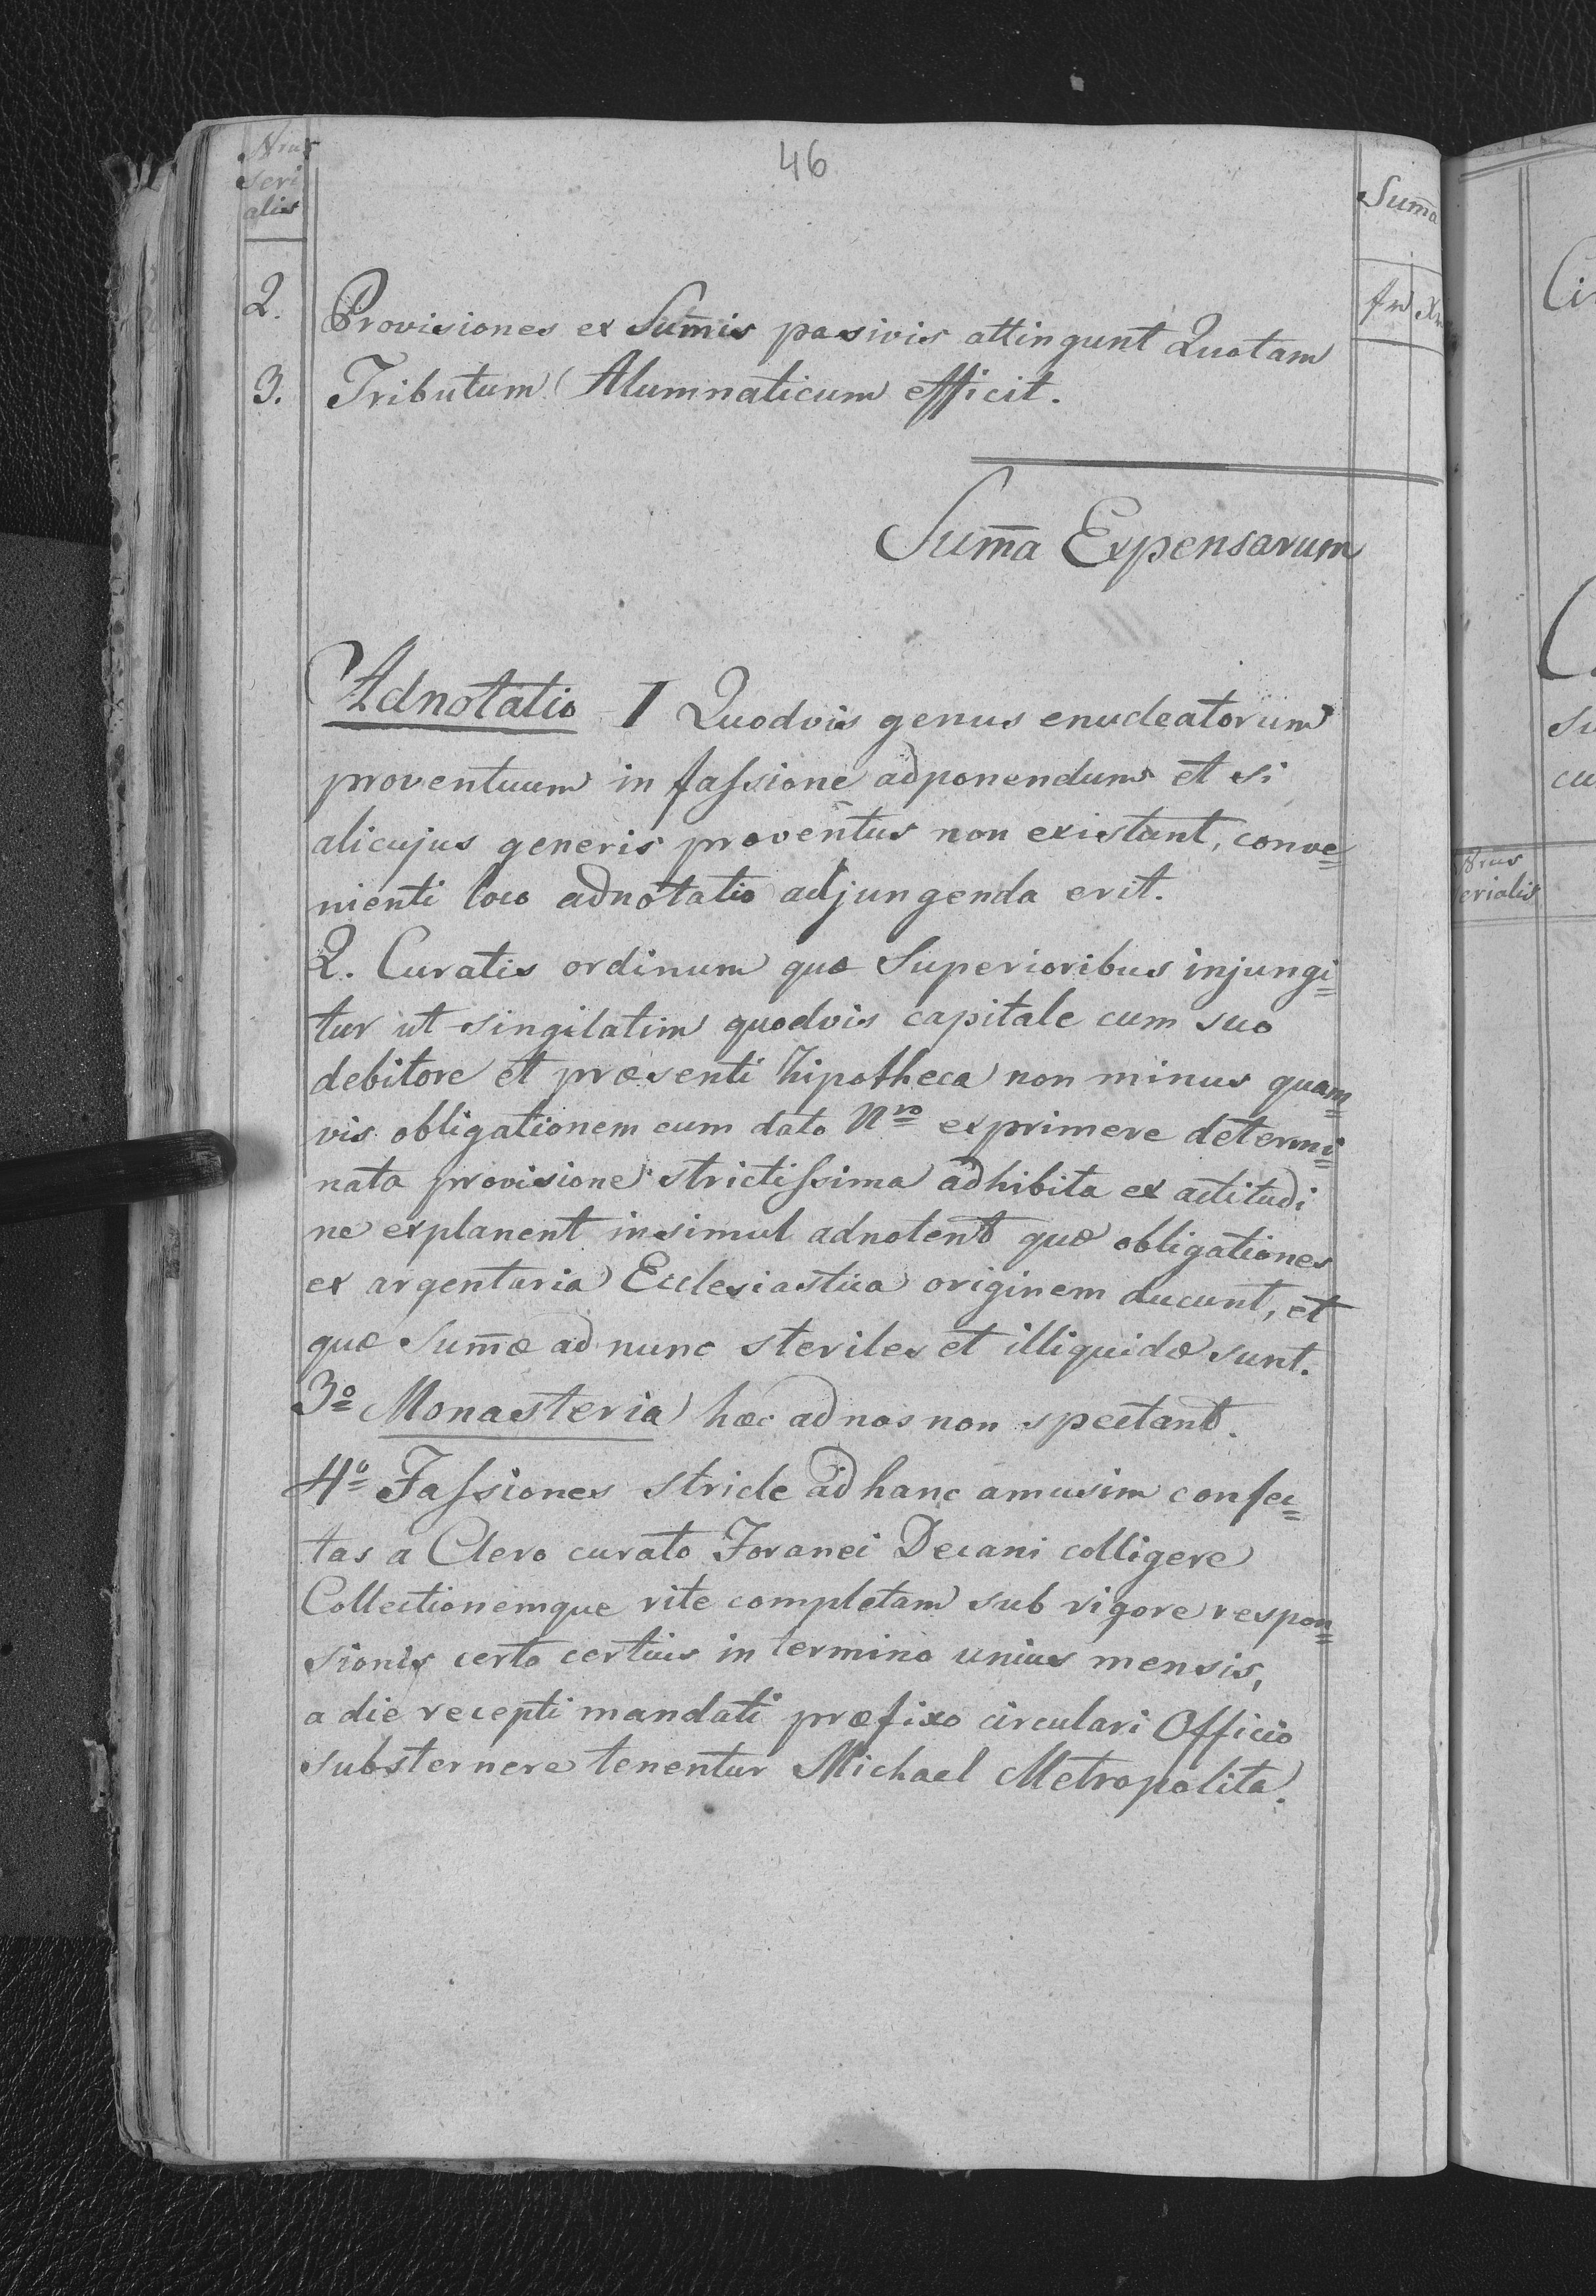 46
Nrus
seri
alis
Sum̄a
fr Xr
2. Provisiones ex Sum̄is pasivis attingunt Quotam
3. Tributum Alumnaticum efficit.
Sum̄a Expensarum
Adnotatio I Quodvis genus enucleatorum
proventuum in faſsione adponendum et si
alicujus generis proventus non existant, conve=
nienti loco adnotatio adjungenda erit.
2. Curatis ordinum quæ Superioribus injungi=
tur ut singilatim quodvis capitale cum suo
debitore et præsenti hipotheca non minus quam=
vis obligationem cum dato Nro exprimere determi=
nata provisione strictiſsima adhibita exactitudi
ne explanent insimul adnotent quæ obligationes
ex argentaria Ecclesiastica originem ducunt, et
quæ Sum̄æ ad nunc steriles et illiquidæ sunt.
3o Monasteria hæc ad nos non spectant.
4o Faſsiones stricte ad hanc amusim confec=
tas a Clero curato Foranei Decani colligere
Collectionemque rite completam sub rigore respon=
sionis certo certius in termino unius mensis,
a die recepti mandati præfixo circulari Officio
substernere tenentur Michael Metropolita.
Ci
su
cu
Nrus
erialis